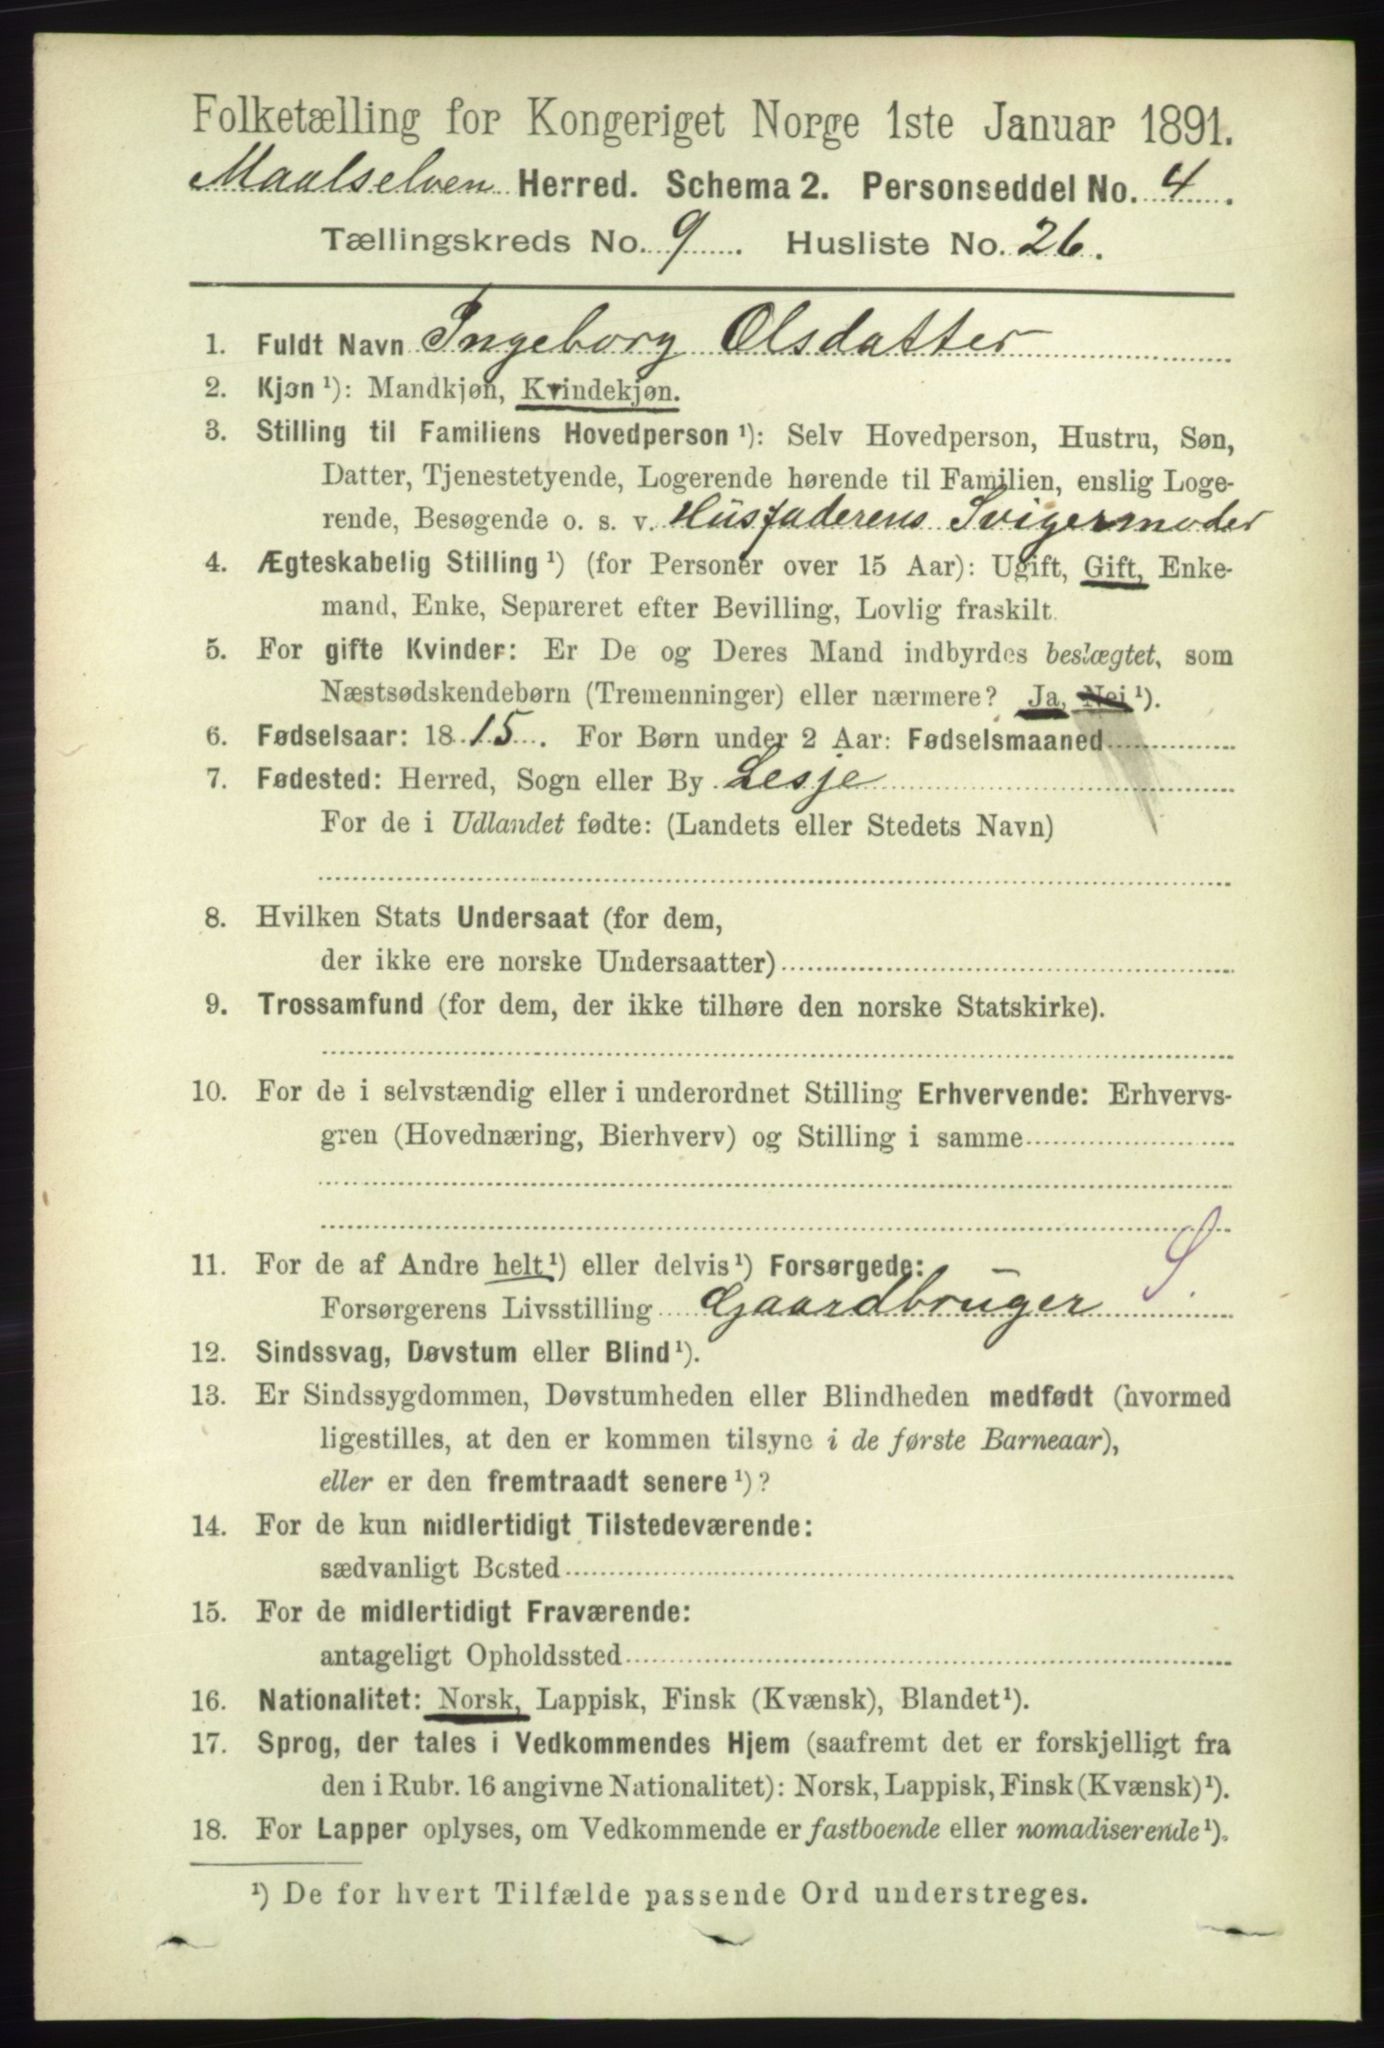 Folketælling for Kongeriget Norge 1ste Januar 1891.
Maalselven Herred. Schema 2. Personseddel No. 4.
Tællingskreds No. 9. Husliste No. 26.
1. Fuldt Navn Ingeborg Olsdatter
2. Kjøn¹): Mandkjøn, Kvindekjøn.
3. Stilling til Familiens Hovedperson¹): Selv Hovedperson, Hustru, Søn,
Datter, Tjenestetyende, Logerende hørende til Familien, enslig Loge-
rende, Besøgende o. s. v. Husfaderens Svigermoder
4. Ægteskabelig Stilling¹) (for Personer over 15 Aar): Ugift, Gift, Enke-
mand, Enke, Separeret efter Bevilling, Lovlig fraskilt.
5. For gifte Kvinder: Er De og Deres Mand indbyrdes beslægtet, som
Næstsødskendebørn (Tremenninger) eller nærmere? Ja, Nei¹).
6. Fødselsaar: 1815. For Børn under 2 Aar: Fødselsmaaned
7. Fødested: Herred, Sogn eller By Lesje
For de i Udlandet fødte: (Landets eller Stedets Navn)
8. Hvilken Stats Undersaat (for dem,
der ikke ere norske Undersaatter)
9. Trossamfund (for dem, der ikke tilhøre den norske Statskirke).
10. For de i selvstændig eller i underordnet Stilling Erhvervende: Erhvervs-
gren (Hovednæring, Bierhverv) og Stilling i samme
11. For de af Andre helt¹) eller delvis¹) Forsørgede:
Forsørgerens Livsstilling Gaardbruger S.
12. Sindssvag, Døvstum eller Blind¹).
13. Er Sindssygdommen, Døvstumheden eller Blindheden medfødt (hvormed
ligestilles, at den er kommen tilsyne i de første Barneaar),
eller er den fremtraadt senere¹)?
14. For de kun midlertidigt Tilstedeværende:
sædvanligt Bosted
15. For de midlertidigt Fraværende:
antageligt Opholdssted
16. Nationalitet: Norsk, Lappisk, Finsk (Kvænsk), Blandet¹).
17. Sprog, der tales i Vedkommendes Hjem (saafremt det er forskjelligt fra
den i Rubr. 16 angivne Nationalitet): Norsk, Lappisk, Finsk (Kvænsk)¹).
18. For Lapper oplyses, om Vedkommende er fastboende eller nomadiserende¹).
¹) De for hvert Tilfælde passende Ord understreges.